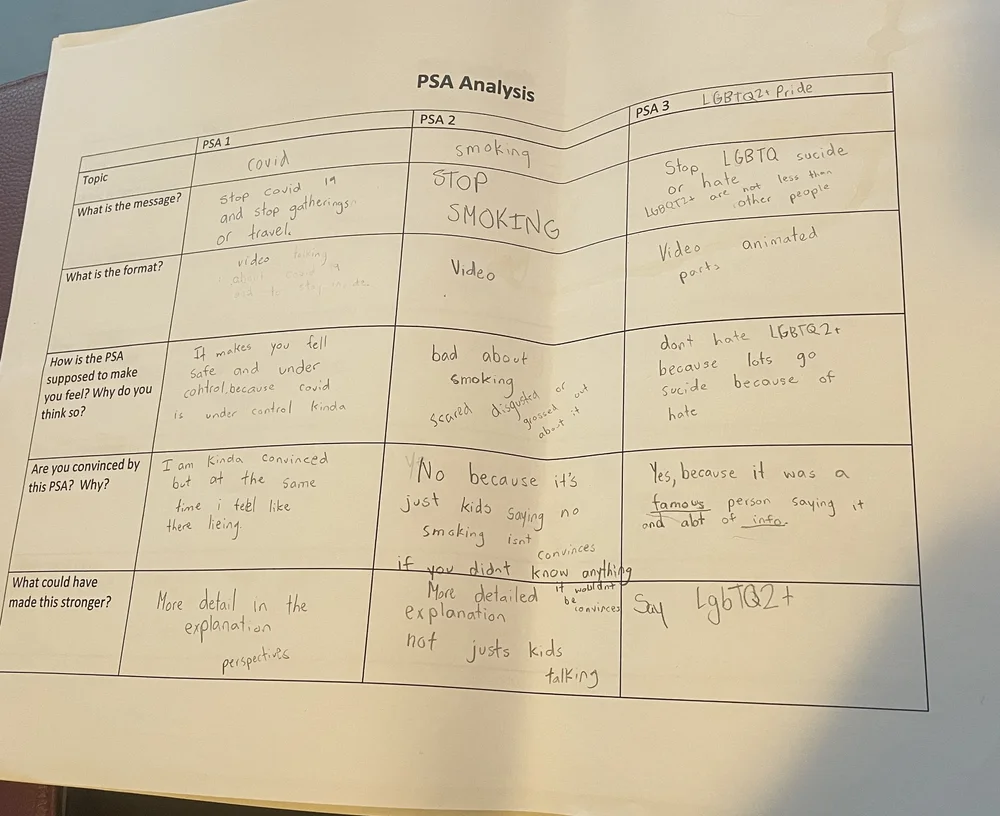 PSA Analysis
PSA 1
PSA 2
PSA 3 LGBTQ2+ Pride
Topic
covid
smoking
What is the message?
Stop covid 19
and stop gatherings
or travel.
STOP
SMOKING
Stop LGBTQ sucide
or hate
LGBQT2+ are not less than
other people
What is the format?
video
about covid 19
to stay inside
Video
Video animated
parts
How is the PSA
supposed to make
you feel? Why do you
think so?
It makes you fell
safe and under
control.because covid
is under control kinda
bad about
smoking
scared disgusted or
grossed out
about it
dont hate LGBTQ2+
because lots go
sucide because of
hate
Are you convinced by
this PSA? Why?
I am kinda convinced
but at the same
time i feel like
there lieing.
No because it's
just kids saying no
smoking isnt
convinces
if you didnt know anything
it wouldnt
be
convinces
Yes, because it was a
famous person saying it
and alot of info.
What could have
made this stronger?
More detail in the
explanation
perspectives
More detailed
explanation
not justs kids
talking
Say LgbTQ2+